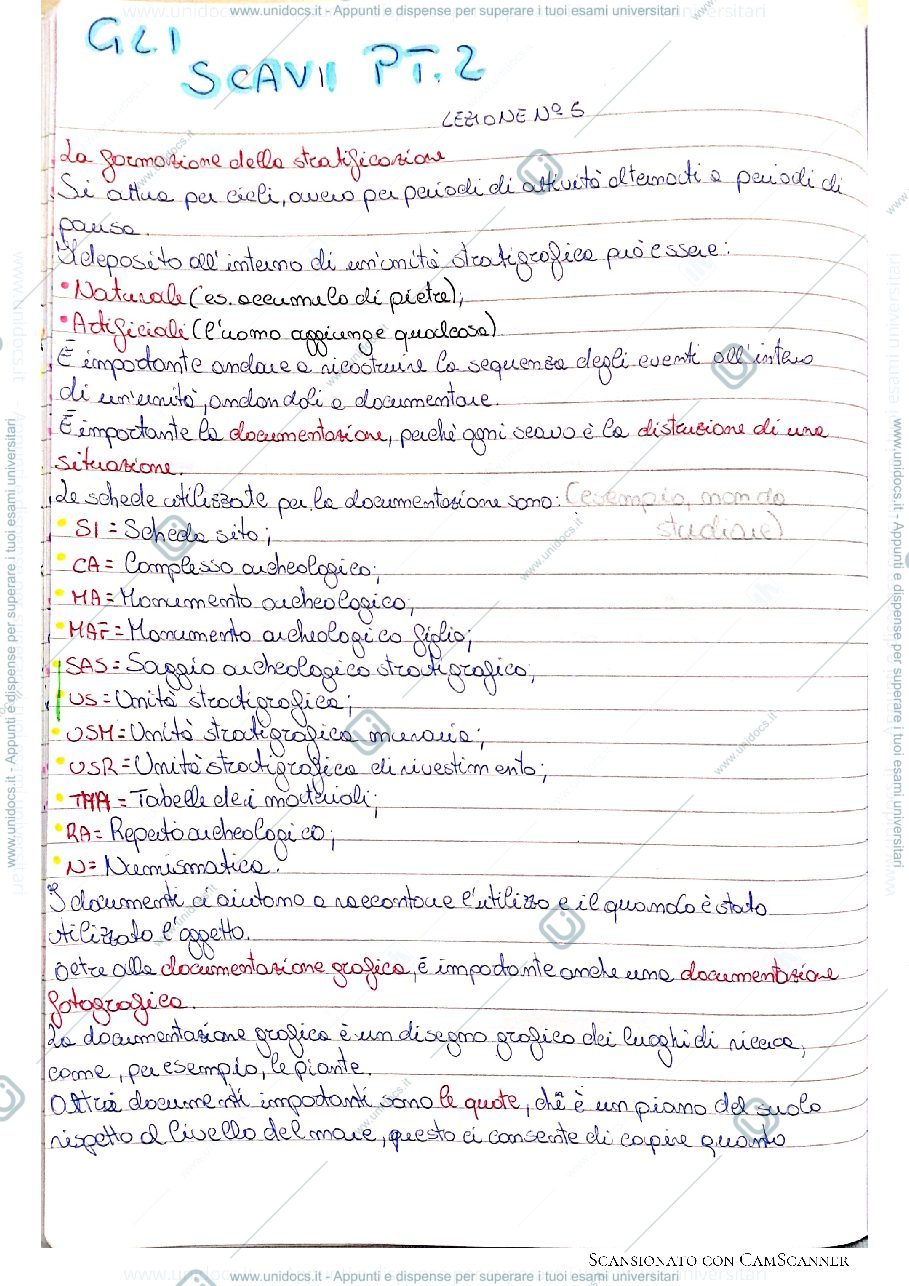 www.unidocs.it - Appunti e dispense per superare i tuoi esami universitari
GLI
SCAVI PT.2
LEZIONE Nº 6
La formazione della stratificazione
Si attua per cicli, ovvero per periodi di attività alternati a periodi di
pausa.
Il deposito all'interno di un'unità stratigrafica può essere:
• Naturale (es. accumulo di pietre);
• Artificiali (l'uomo aggiunge qualcosa)
È importante andare a ricostruire la sequenza degli eventi all'interno
di un'unità, andandoli a documentare.
È importante la documentazione, perché ogni scavo è la distruzione di una
situazione.
Le schede utilizzate per la documentazione sono: (esempio, non da
studiare)
• SI = Scheda sito;
• CA = Complesso archeologico;
• MA = Monumento archeologico;
• MAF = Monumento archeologico figlio;
• SAS = Saggio archeologico stratigrafico;
• US = Unità stratigrafica;
• USM = Unità stratigrafica muraria;
• USR = Unità stratigrafica di rivestimento;
• TMA = Tabelle dei materiali;
• RA = Reperto archeologico;
• N = Numismatica.
I documenti ci aiutano a raccontare l'utilizzo e il quando è stato
utilizzato l'oggetto.
Oltre alla documentazione grafica, è importante anche una documentazione
fotografica.
La documentazione grafica è un disegno grafico dei luoghi di ricerca,
come, per esempio, le piante.
Altri documenti importanti sono le quote, che è un piano del suolo
rispetto al livello del mare, questo ci consente di capire quanto
SCANSIONATO CON CAMSCANNER
www.unidocs.it - Appunti e dispense per superare i tuoi esami universitari